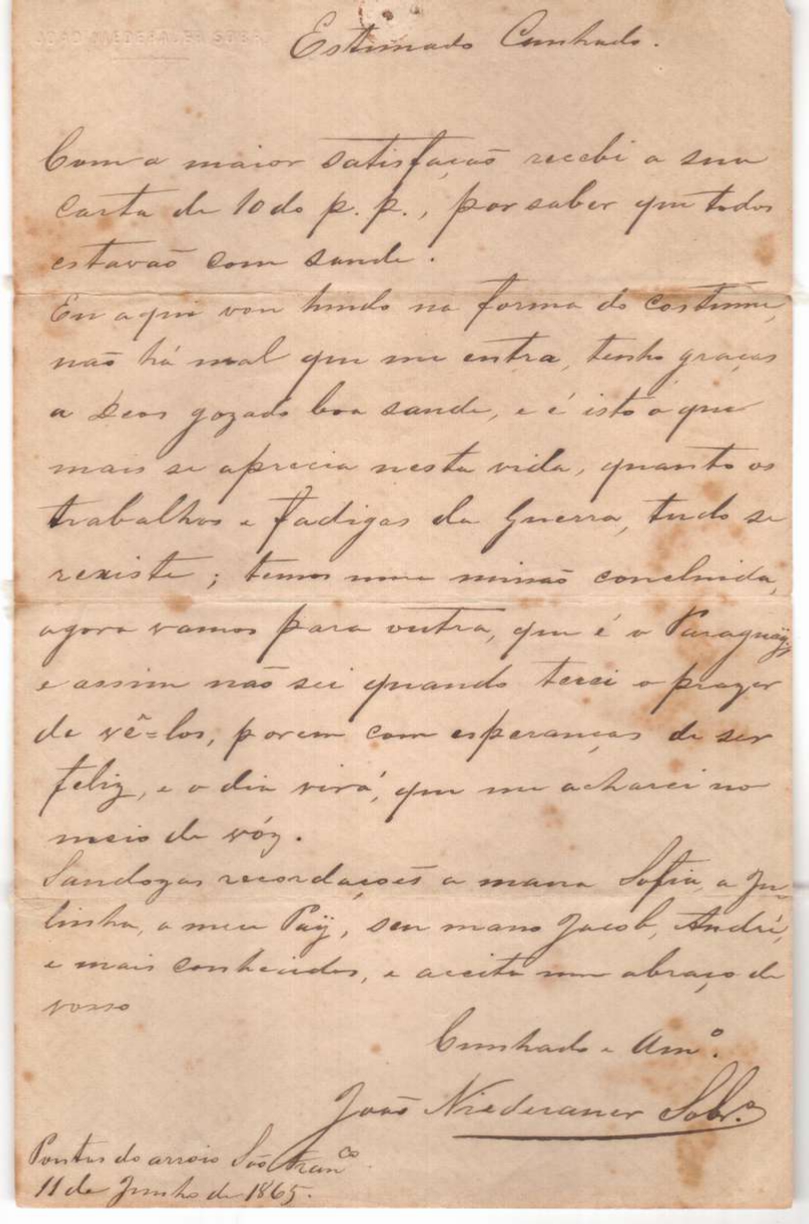 JOÃO NIEDERAUER SOBR.
Estimado Cunhado.
Com a maior satisfação recebi a sua
carta de 10 do p. p., por saber que todos
estavão com saude.
Eu aqui vou hindo na forma do costume,
não há mal que me entra, tenho graças
a Deos gozado boa saude, e é isto o que
mais se aprecia nesta vida, quanto os
trabalhos e fadigas da Guerra, tudo se
rexiste; temos uma missão concluida,
agora vamos para outra, que é o Paraguäy,
e assim não sei quando terei o prazer
de vê=los, porem com esperanças de ser
feliz, e o dia virá, que me acharei no
meio de vóz.
Saudozas recordações a mana Sofia, a Ju-
linha, a meu Paÿ, seu mano Jacob, André,
e mais conhecidos, e aceite um abraço de
vosso
Cunhado e Amº.
João Niederauer Sobrº.
Pontas do arroio São Franco
11 de Junho de 1865.